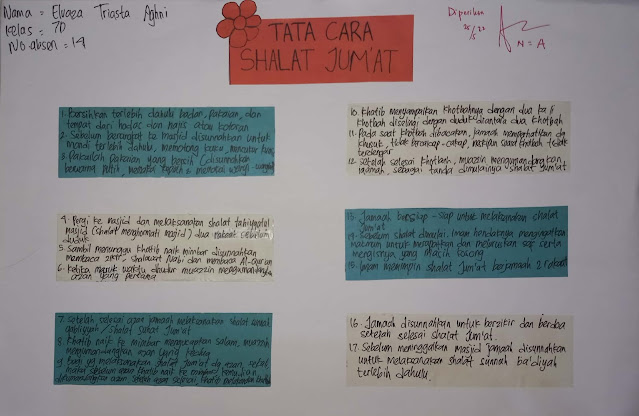 Nama = Elvaza Triasta Aghni
Kelas = 7D
No absen = 14
TATA CARA
SHALAT JUM'AT
Diperiksa
25/5 22
N = A
1. Bersihkan terlebih dahulu badan, pakaian, dan
tempat dari hadas dan najis atau kotoran
2. Sebelum berangkat ke masjid disunnahkan untuk
mandi terlebih dahulu, memotong kuku, mencukur kumis
3. Pakailah Pakaian yang bersih (disunnahkan
berwarna putih, memakai Kopiah & memakai wangi-wangian
4. Pergi ke masjid dan melaksanakan shalat tahiyyatul
masjid (shalat menghormati masjid) dua rakaat sebelum
duduk
5. Sambil menunggu khatib naik mimbar disunnahkan
membaca zikir, sholawat Nabi dan membaca Al-Qur'an
6. Ketika masuk waktu dzuhur muazzin mengumandangkan
azan yang pertama
7. Setelah selesai azan jamaah melaksanakan shalat sunnah
qabliyah / Shalat Sunat Jum'at
8. Khatib naik ke mimbar mengucapkan salam, muazin
mengumandangkan azan yang kedua
9. bagi yg melaksanakan shalat Jum'at dg azan sekali
maka sebelum azan khatib naik ke mimbar
azan selesai, khatib
10. Khatib menyampaikan khotbahnya dengan dua
khotbah diselingi dengan duduk diantara dua khotbah
11. Pada saat khotbah dibacakan, jamaah memperhatikan dg
khusuk, tidak bercakap-cakap, meskipun suara khotbah tidak
terdengar
12. setelah selesai Khotbah, muazin mengumandangkan
iqamah, sebagai tanda dimulainya shalat Jum'at
13. Jamaah bersiap-siap untuk melaksanakan shalat
Jum'at
14. Sebelum shalat dimulai, Imam hendaknya mengingatkan
makmum untuk merapatkan dan meluruskan sap serta
mengisinya yang masih kosong
15. Imam memimpin shalat Jum'at berjamaah 2 rakaat
16. Jamaah disunnahkan untuk berzikir dan berdoa
setelah selesai shalat Jum'at.
17. Sebelum meninggalkan masjid jamaah disunnahkan
untuk melaksanakan shalat sunnah ba'diyah
terlebih dahulu.